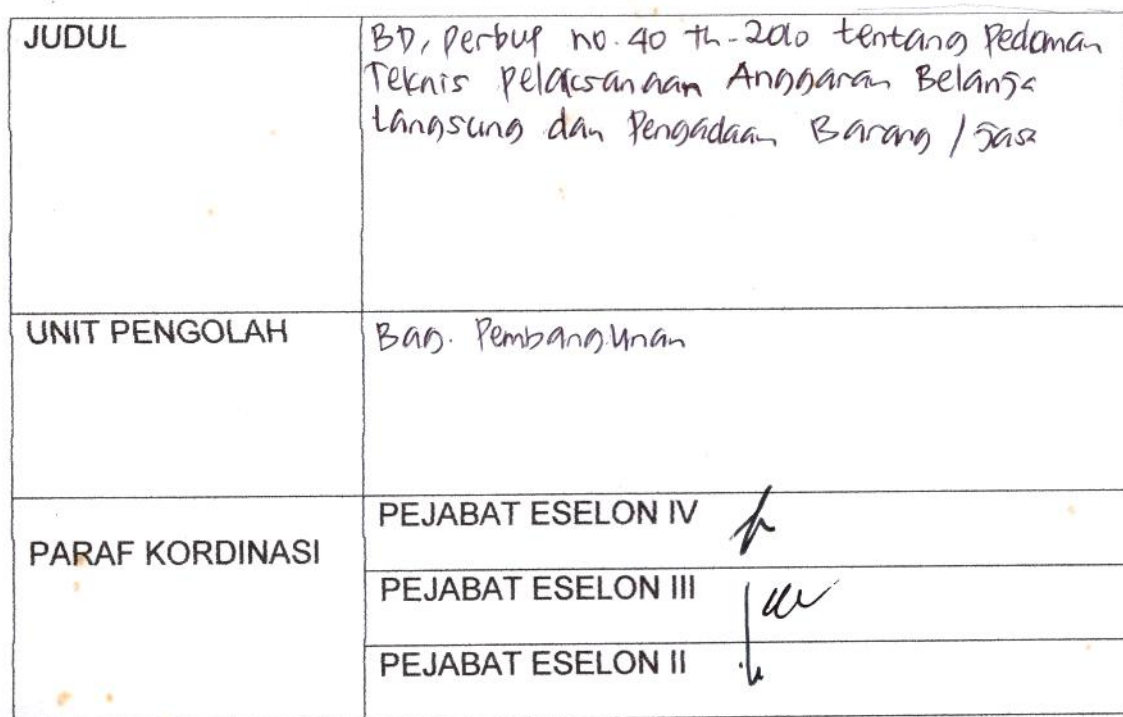 JUDUL
BD, perbup no. 40 th-2010 tentang Pedoman
Teknis Pelaksanaan Anggaran Belanja
Langsung dan Pengadaan Barang / Jasa
UNIT PENGOLAH
Bag. Pembangunan
PARAF KORDINASI
PEJABAT ESELON IV
PEJABAT ESELON III
PEJABAT ESELON II